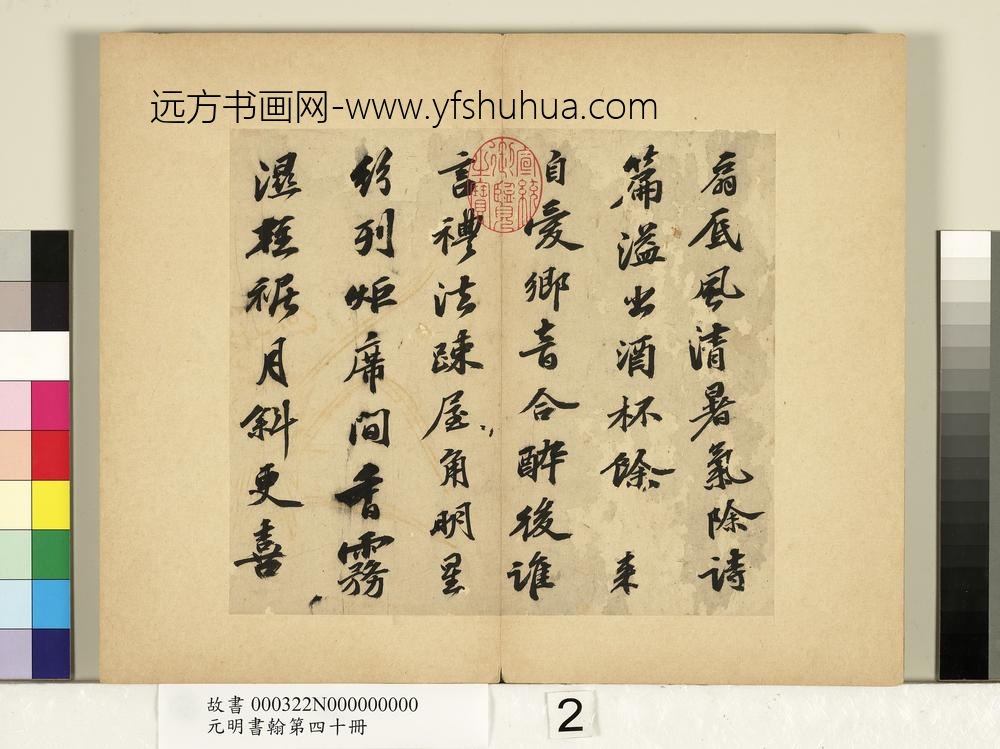 远方书画网-www.yfshuhua.com
扇底風清暑氣除詩
篇溢出酒杯餘 来
自愛鄉音合醉後誰
言禮法疎屋角明星
紛列炬席間香霧
濕輕裾月斜更喜
宣統御覽之寶
故書 000322N000000000
元明書翰第四十冊
2